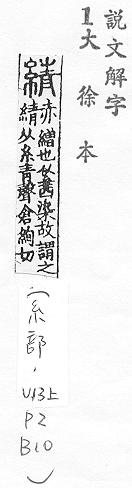 說文解字
1大徐本
綪
赤繒也从茜染故謂之
綪从糸青聲倉絢切
（糸部，
V13上
P2
B10）